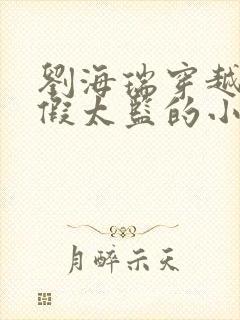 劉海瑞穿越
假太監的小
月醉示天